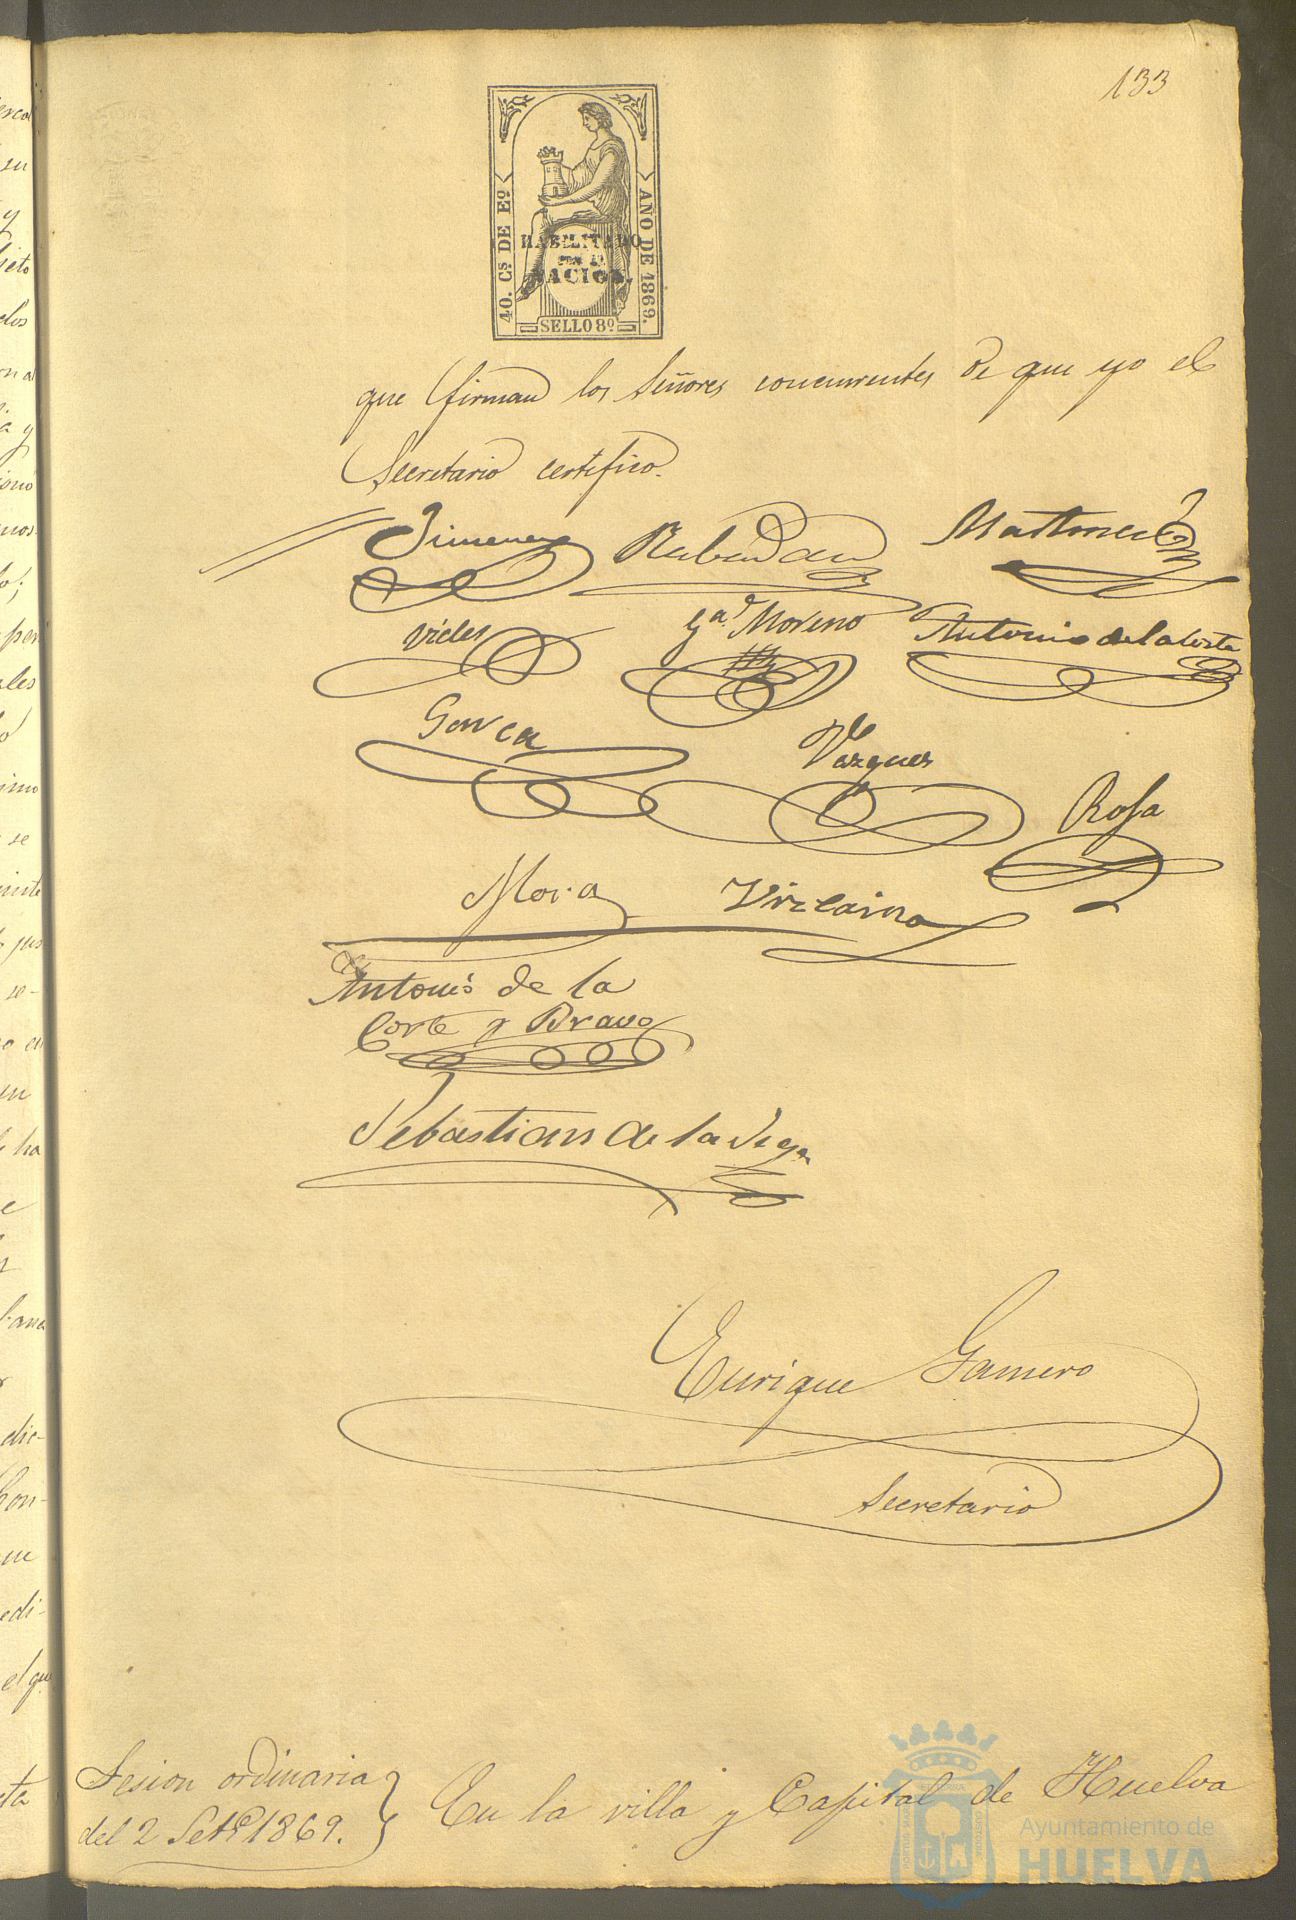 133
40. Cs DE Eº
AÑO DE 1869.
HABILITADO
POR LA
NACION.
SELLO 8º
que firman los Señores concurrentes de que yo el
Secretario certifico.
Jimenez
Martinez
Gª Moreno
Antonio de la Corte
Vazquez
Rosa
Mora
Vizcaino
Antonio de la
Corte y Bravo
Sebastian de la Vega
Enrique Gamero
Secretario
Sesion ordinaria
del 2 Setre 1869.
En la villa y Capital de Huelva
Ayuntamiento de
HUELVA